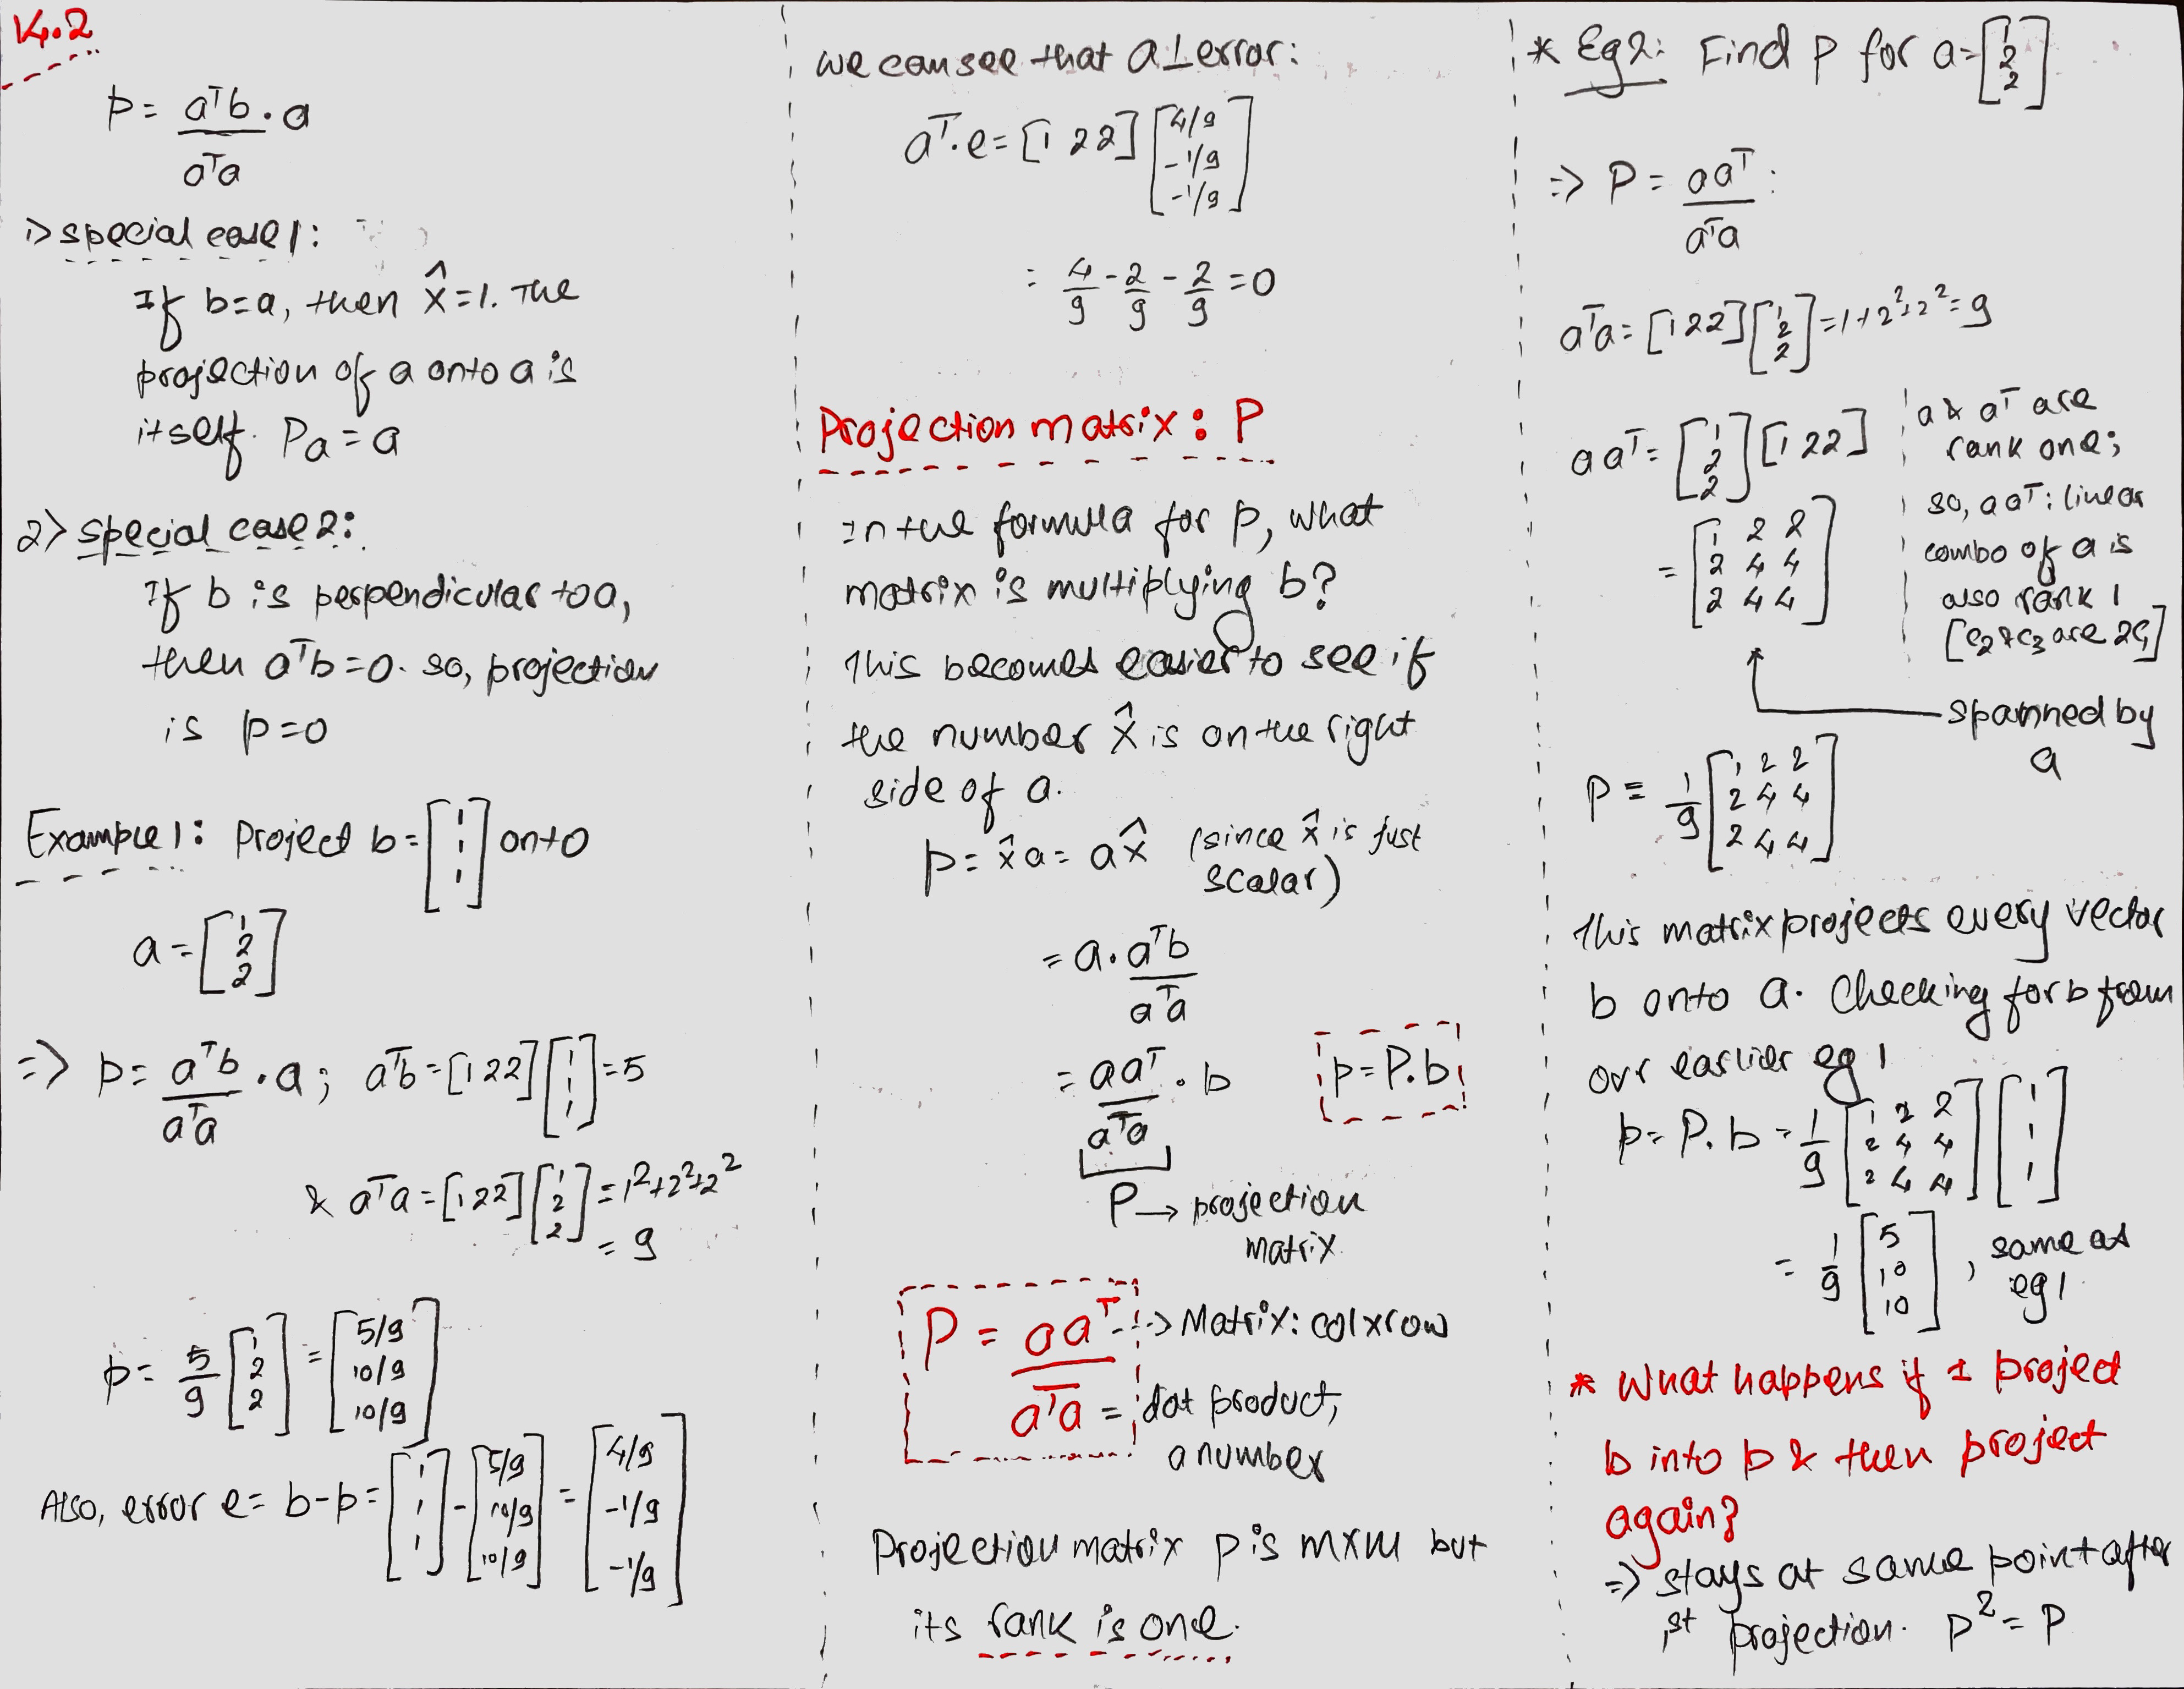 14.2
p = aᵀb/aᵀa · a
1> special case 1:
If b=a, then x̂=1. The
projection of a onto a is
itself. Pa = a
2> special case 2:
If b is perpendicular to a,
then aᵀb=0. so, projection
is p=0
Example 1: Project b = [1 1 1] onto
a = [1 2 2]
=> p = aᵀb/aᵀa · a; aᵀb = [1 2 2][1 1 1] = 5
& aᵀa = [1 2 2][1 2 2] = 1²+2²+2²
= 9
p = 5/9 [1 2 2] = [5/9 10/9 10/9]
Also, error e = b-p = [1 1 1] - [5/9 10/9 10/9] = [4/9 -1/9 -1/9]
we can see that a⊥error:
aᵀ·e = [1 2 2][4/9 -1/9 -1/9]
= 4/9 - 2/9 - 2/9 = 0
Projection matrix: P
In the formula for p, what
matrix is multiplying b?
This becomes easier to see if
the number x̂ is on the right
side of a.
p = x̂a = ax̂ (since x̂ is just
scalar)
= a· aᵀb/aᵀa
= aaᵀ/aᵀa · b
p = P.b
P → projection
matrix
P = aaᵀ/aᵀa
--> Matrix: col x row
= dot product,
a number
Projection matrix P is mxm but
its rank is one.
* Eg 2: Find P for a = [1 2 2]
=> P = aaᵀ/aᵀa :
aᵀa = [1 2 2][1 2 2] = 1+2²+2² = 9
aaᵀ = [1 2 2][1 2 2]
= [1 2 2
2 4 4
2 4 4]
a & aᵀ are
rank one;
so, aaᵀ: linear
combo of a is
also rank 1
[c₂ & c₃ are 2c₁]
spanned by
a
P = 1/9 [1 2 2
2 4 4
2 4 4]
This matrix projects every vector
b onto a. Checking for b from
our earlier eg 1
p = P.b = 1/9 [1 2 2
2 4 4
2 4 4] [1 1 1]
= 1/9 [5 10 10], same as
eg 1
* What happens if I project
b into p & then project
again?
=> stays at same point after
1st projection. P² = P